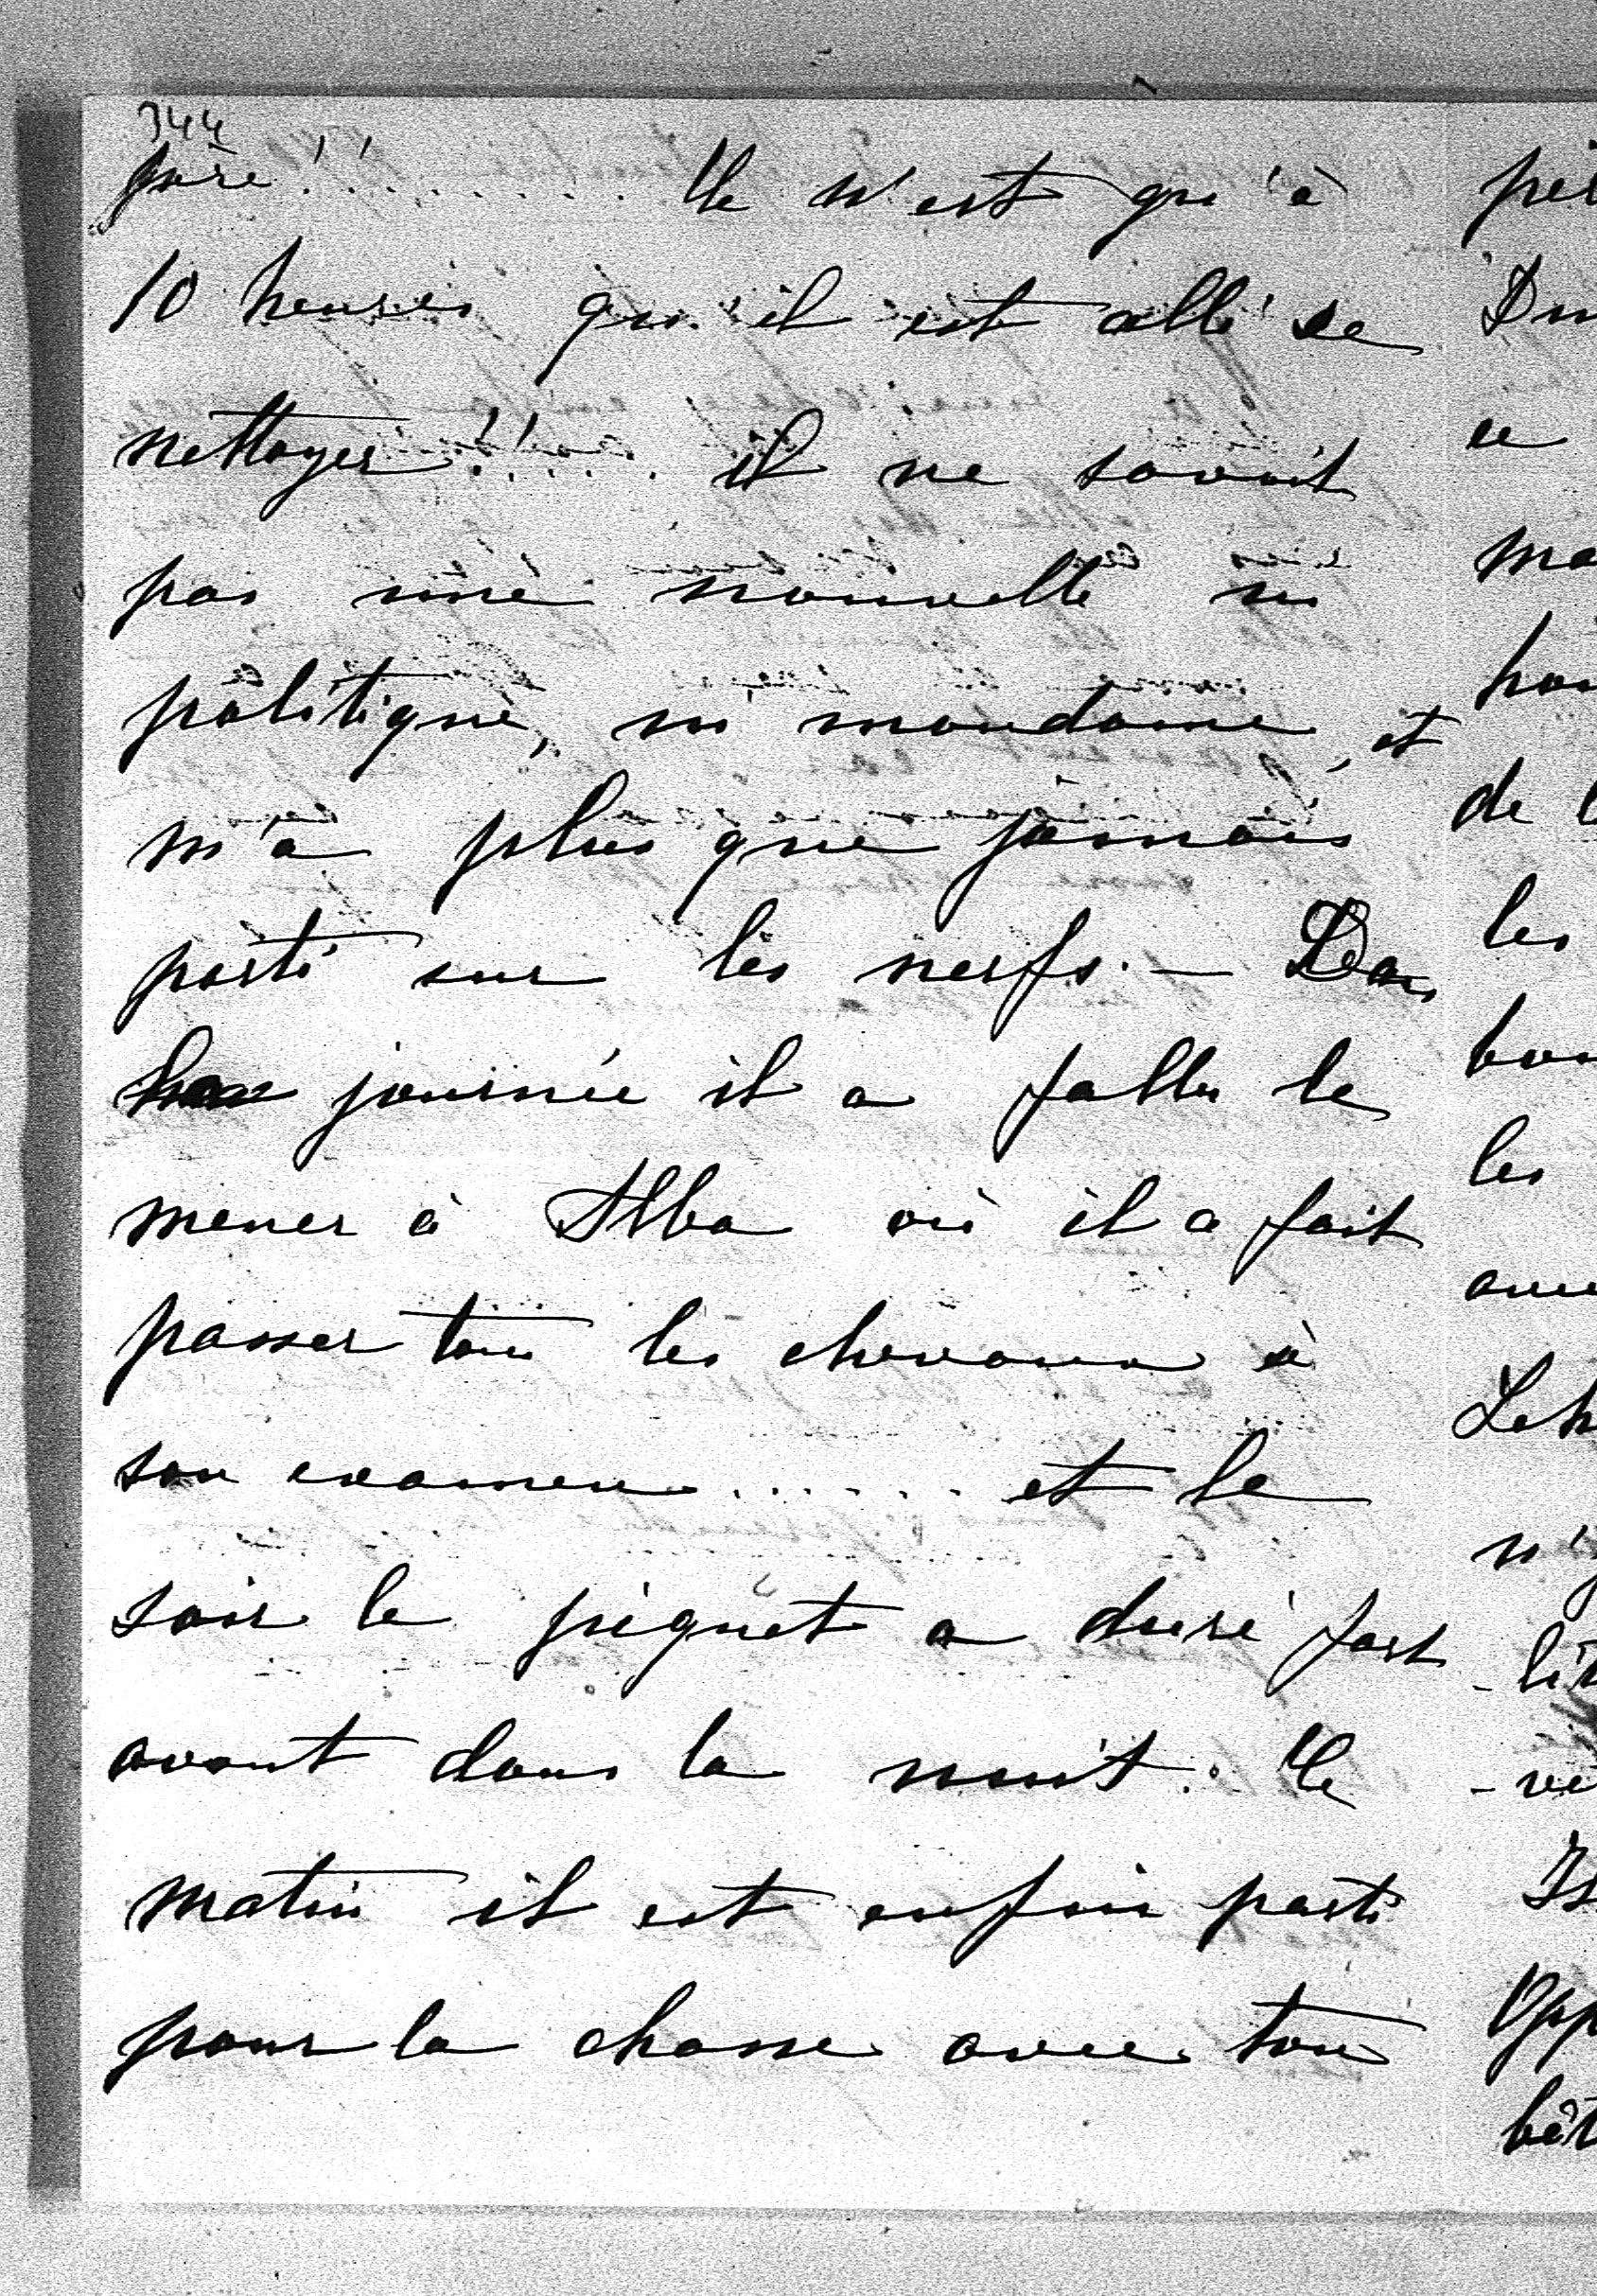 344
père!!........ Ce n'est qu'à
10 heures qu'il est allé se
nettoyer!!..... il ne savait
pas une nouvelle ni
politique, ni mondaine, et
m'a plus que jamais
porté sur les nerfs. — Dans
journée il a fallu le
mener à Alba où il a fait
passer tous les chevaux à
son examen....... et le
soir le piquet a duré fort
avant dans la nuit. Ce
matin il est enfin parti
pour la chasse avec ton
de
les
les